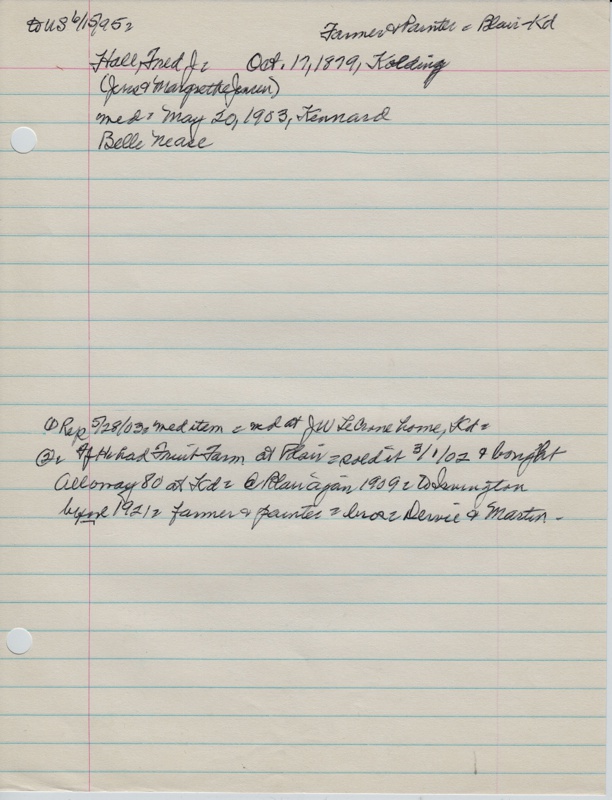 to US 6/15/95 = Farmer & Painter = Blair-Kd
Hall, Fred J = Oct. 17, 1879, Kolding
(Jens & Margrethe Jensen)
med = May 20, 1903, Kennard
Belle Nease
① Rep 5/28/03 = med item = md at JW LeCrone home, Kd =
②= He had Fruit Farm at Blair = sold it 3/1/02 & bought
Alloway 80 at Kd = @ Blair again 1909 = to Irvington
before 1921 = farmer & painter = bros = Dervie & Martin -